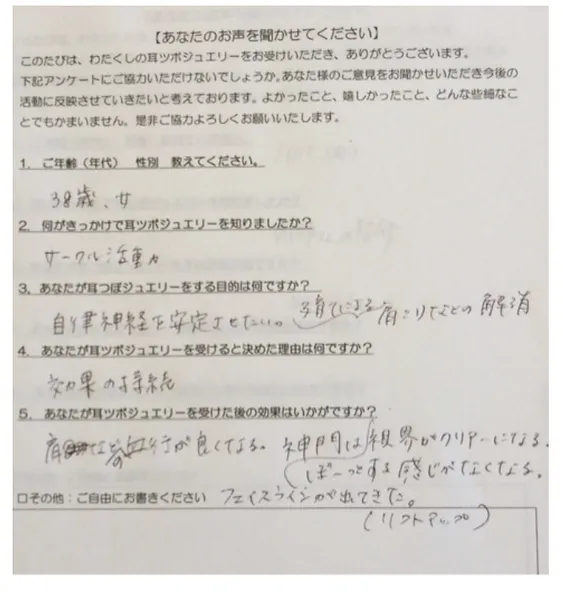 【あなたのお声を聞かせてください】
このたびは、わたくしの耳ツボジュエリーをお受けいただき、ありがとうございます。
下記アンケートにご協力いただけないでしょうか。あなた様のご意見をお聞かせいただき今後の
活動に反映させていきたいと考えております。よかったこと、嬉しかったこと、どんな些細なこ
とでもかまいません。是非ご協力よろしくお願いいたします。
1. ご年齢（年代） 性別 教えてください。
38歳、女
2. 何がきっかけで耳ツボジュエリーを知りましたか？
サークル活動
3. あなたが耳つぼジュエリーをする目的は何ですか？
自律神経を安定させたい。 子育てによる肩こりなどの解消
4. あなたが耳ツボジュエリーを受けると決めた理由は何ですか？
効果の持続
5. あなたが耳ツボジュエリーを受けた後の効果はいかがですか？
肩 血行が良くなる。 神門は視界がクリアーになる。
ぼーっとする感じがなくなる。
口その他：ご自由にお書きください フェイスラインが出てきた。
（リフトアップ）